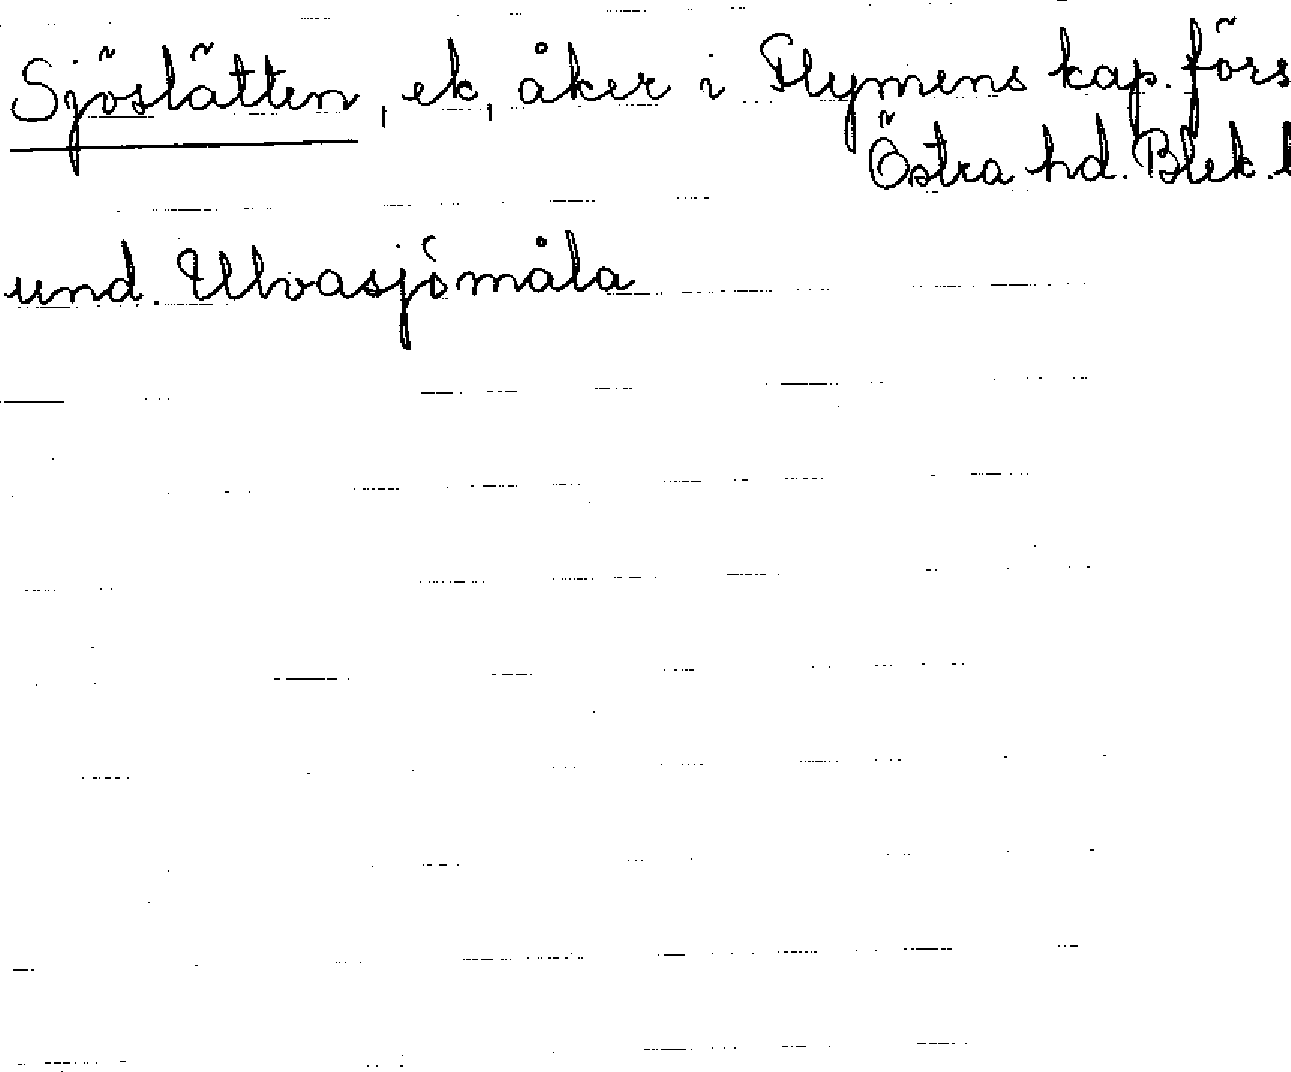 Sjöslätten, ek, åker i Flymens kap. förs
Östra hd. Blek. l
und. Ulvasjömåla